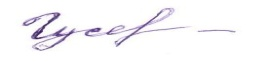 Гусев